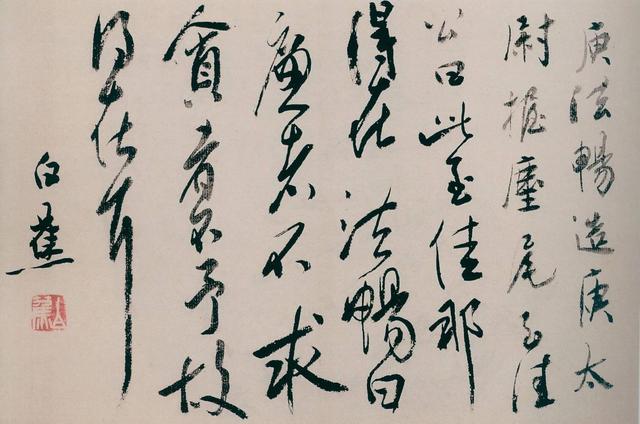 庾法暢造庾太
尉握麈尾至佳
公曰此至佳那
得在法暢曰
廉者不求
貪者不予故
得在耳
白蕉